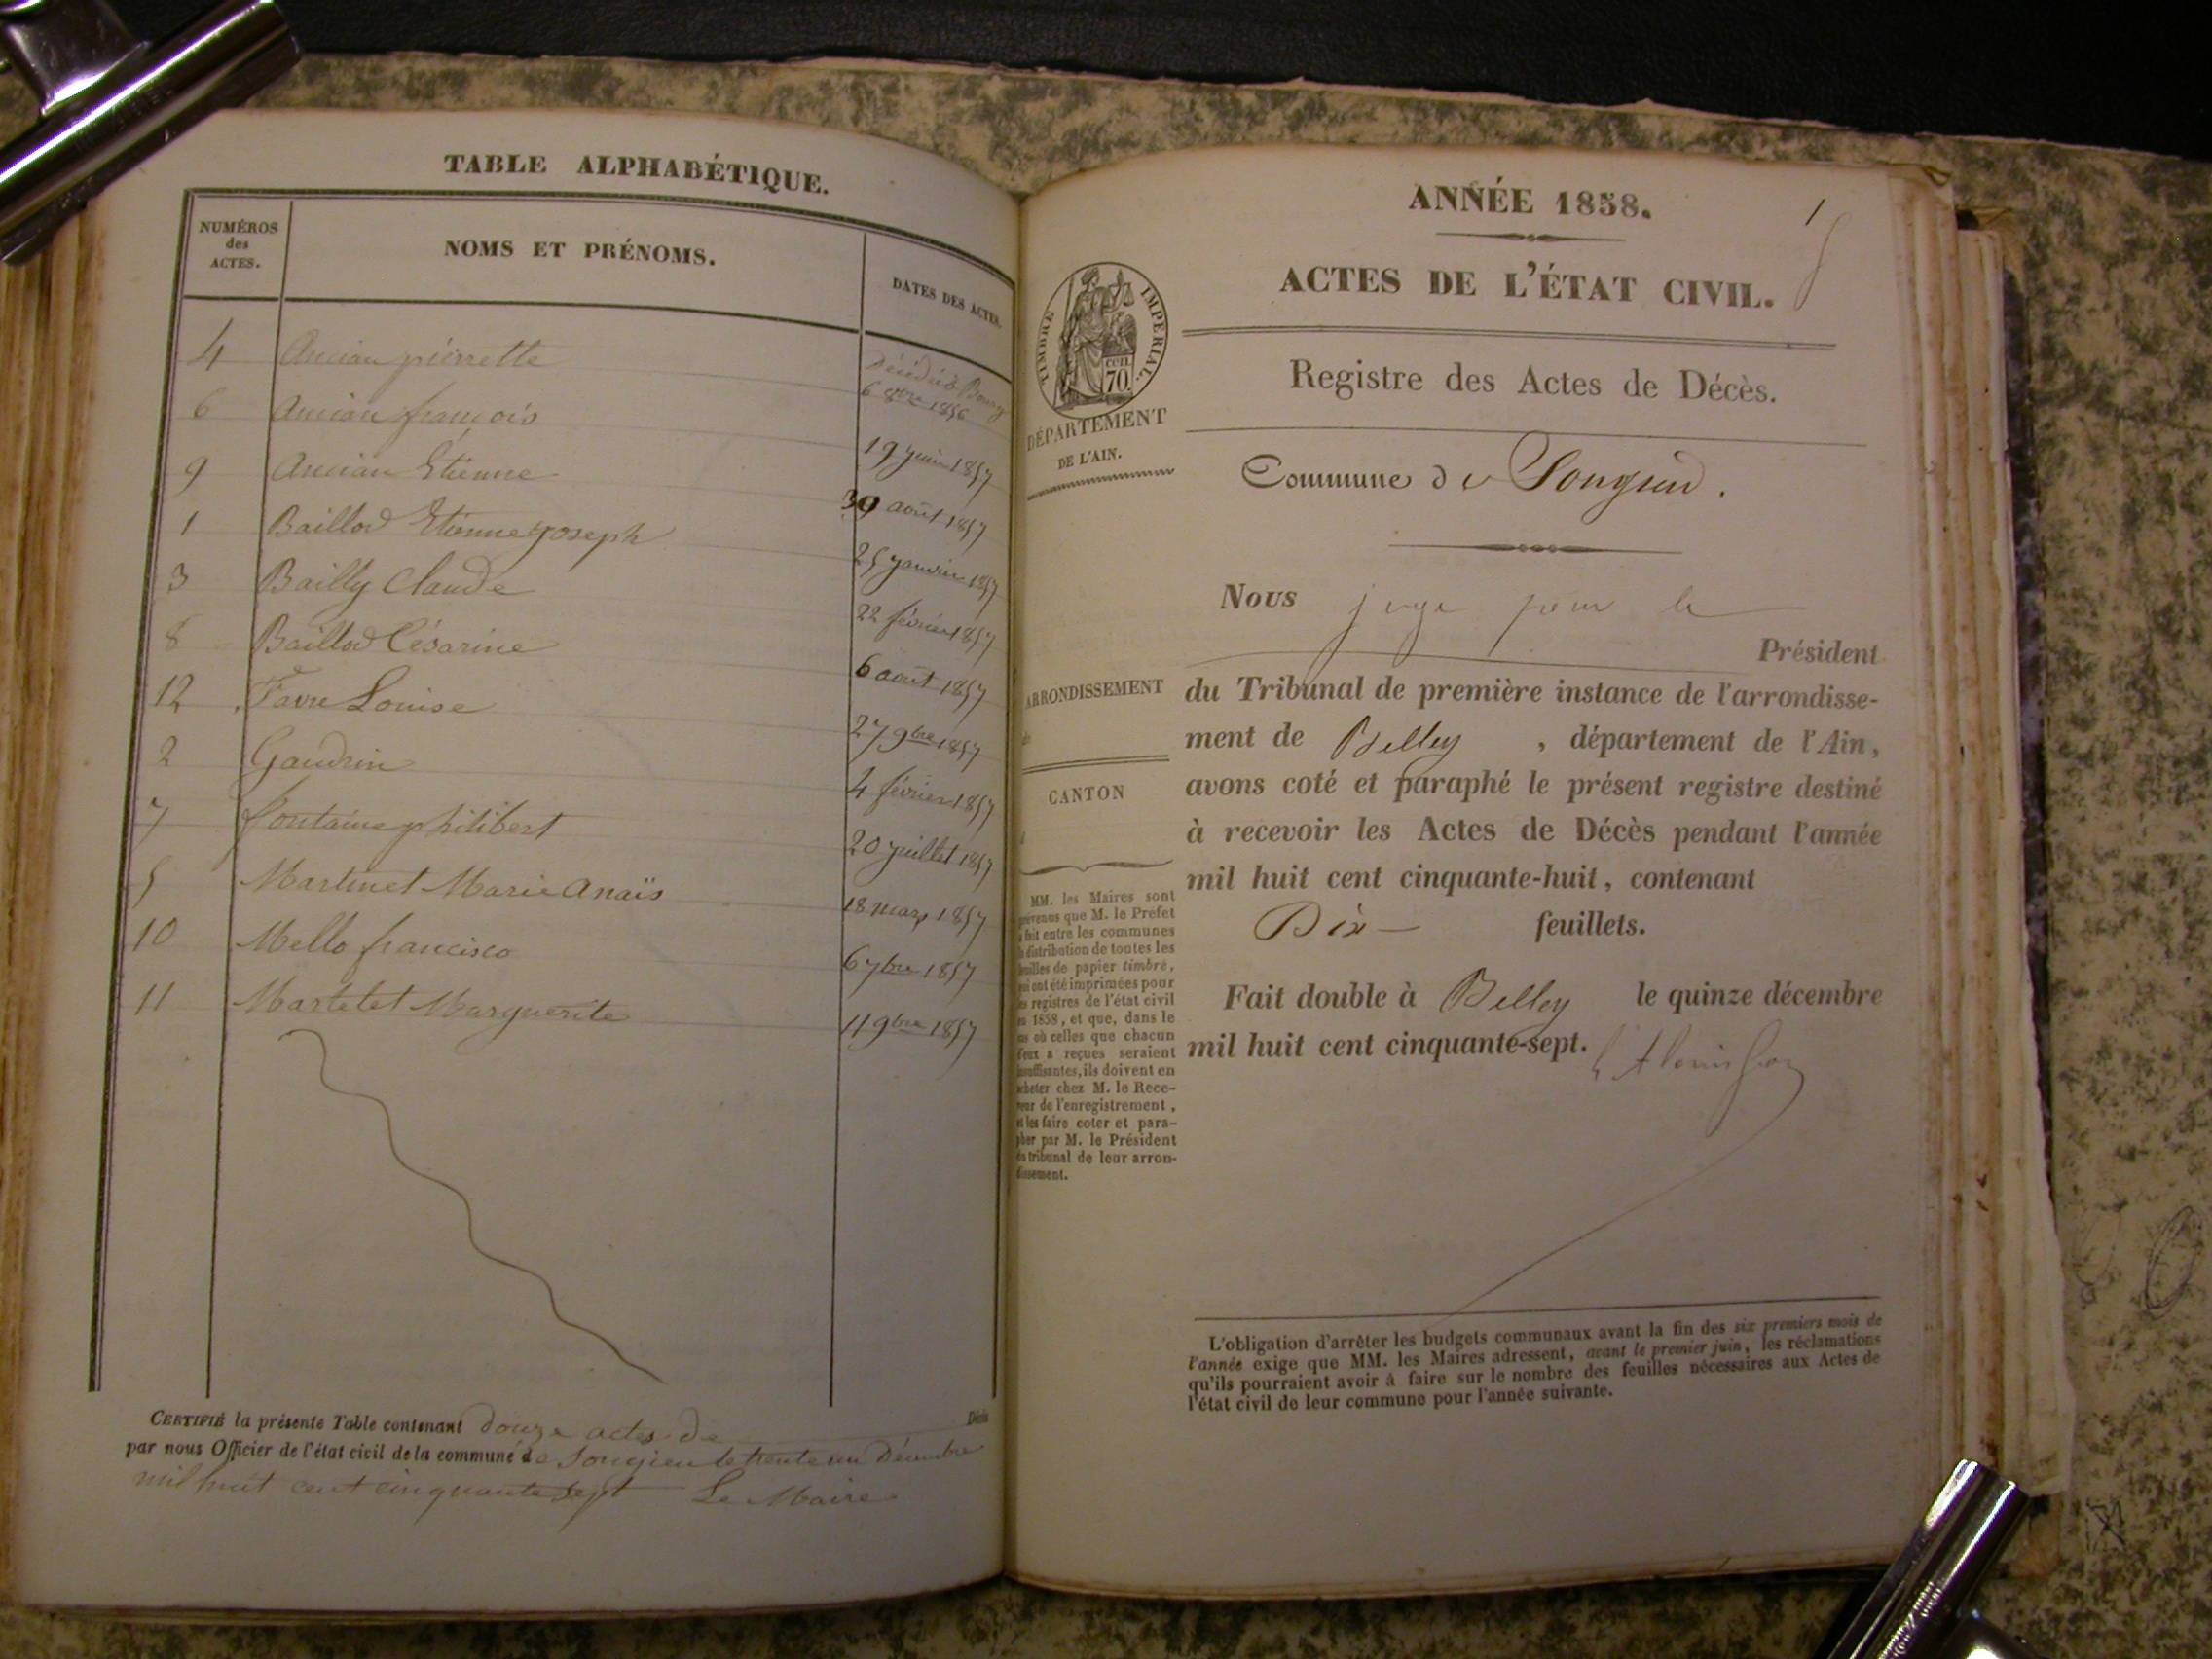 TABLE ALPHABÉTIQUE.
NUMÉROS
des
ACTES.
NOMS ET PRÉNOMS.
DATES DES ACTES.
4 Ancian pierrette Décédée à Bourg
6 8bre 1856
6 Ancian françois 19 juin 1857
9 Ancian Etienne 30 août 1857
1 Baillod Etienne Joseph 25 janvier 1857
3 Bailly Claude 22 février 1857
8 Baillod Césarine 6 août 1857
12 Favre Louise 27 9bre 1857
2 Gaudrin 4 février 1857
7 fontaine philibert 20 juillet 1857
5 Martinet Marie Anaïs 18 mars 1857
10 Mello francisco 6 7bre 1857
11 Martelet Marguerite 11 9bre 1857
CERTIFIÉ la présente Table contenant douze actes de Décès
par nous Officier de l'état civil de la commune de Songieu le trente un Décembre
mil huit cent cinquante sept Le Maire
1
ANNÉE 1858.
ACTES DE L'ÉTAT CIVIL.
TIMBRE IMPERIAL.
CEN.
70
DÉPARTEMENT
DE L'AIN.
Registre des Actes de Décès.
Commune de Songieu.
Nous juge pour le
Président
du Tribunal de première instance de l'arrondisse-
ment de Belley, département de l'Ain,
avons coté et paraphé le présent registre destiné
à recevoir les Actes de Décès pendant l'année
mil huit cent cinquante-huit, contenant
Dix feuillets.
Fait double à Belley le quinze décembre
mil huit cent cinquante-sept.
ARRONDISSEMENT
CANTON
MM. les Maires sont
prévenus que M. le Préfet
a fait entre les communes
la distribution de toutes les
feuilles de papier timbré,
qui ont été imprimées pour
les registres de l'état civil
en 1858, et que, dans le
cas où celles que chacun
d'eux a reçues seraient
insuffisantes, ils doivent en
acheter chez M. le Rece-
veur de l'enregistrement,
et les faire coter et para-
pher par M. le Président
du tribunal de leur arron-
dissement.
L'obligation d'arrêter les budgets communaux avant la fin des six premiers mois de
l'année exige que MM. les Maires adressent, avant le premier juin, les réclamations
qu'ils pourraient avoir à faire sur le nombre des feuilles nécessaires aux Actes de
l'état civil de leur commune pour l'année suivante.